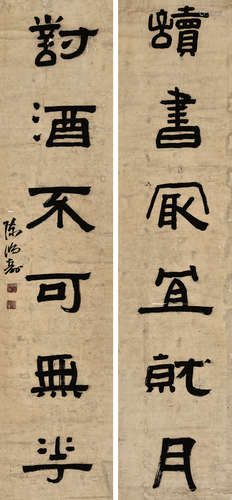 讀書冣宜就月
對酒不可無
陳鴻壽